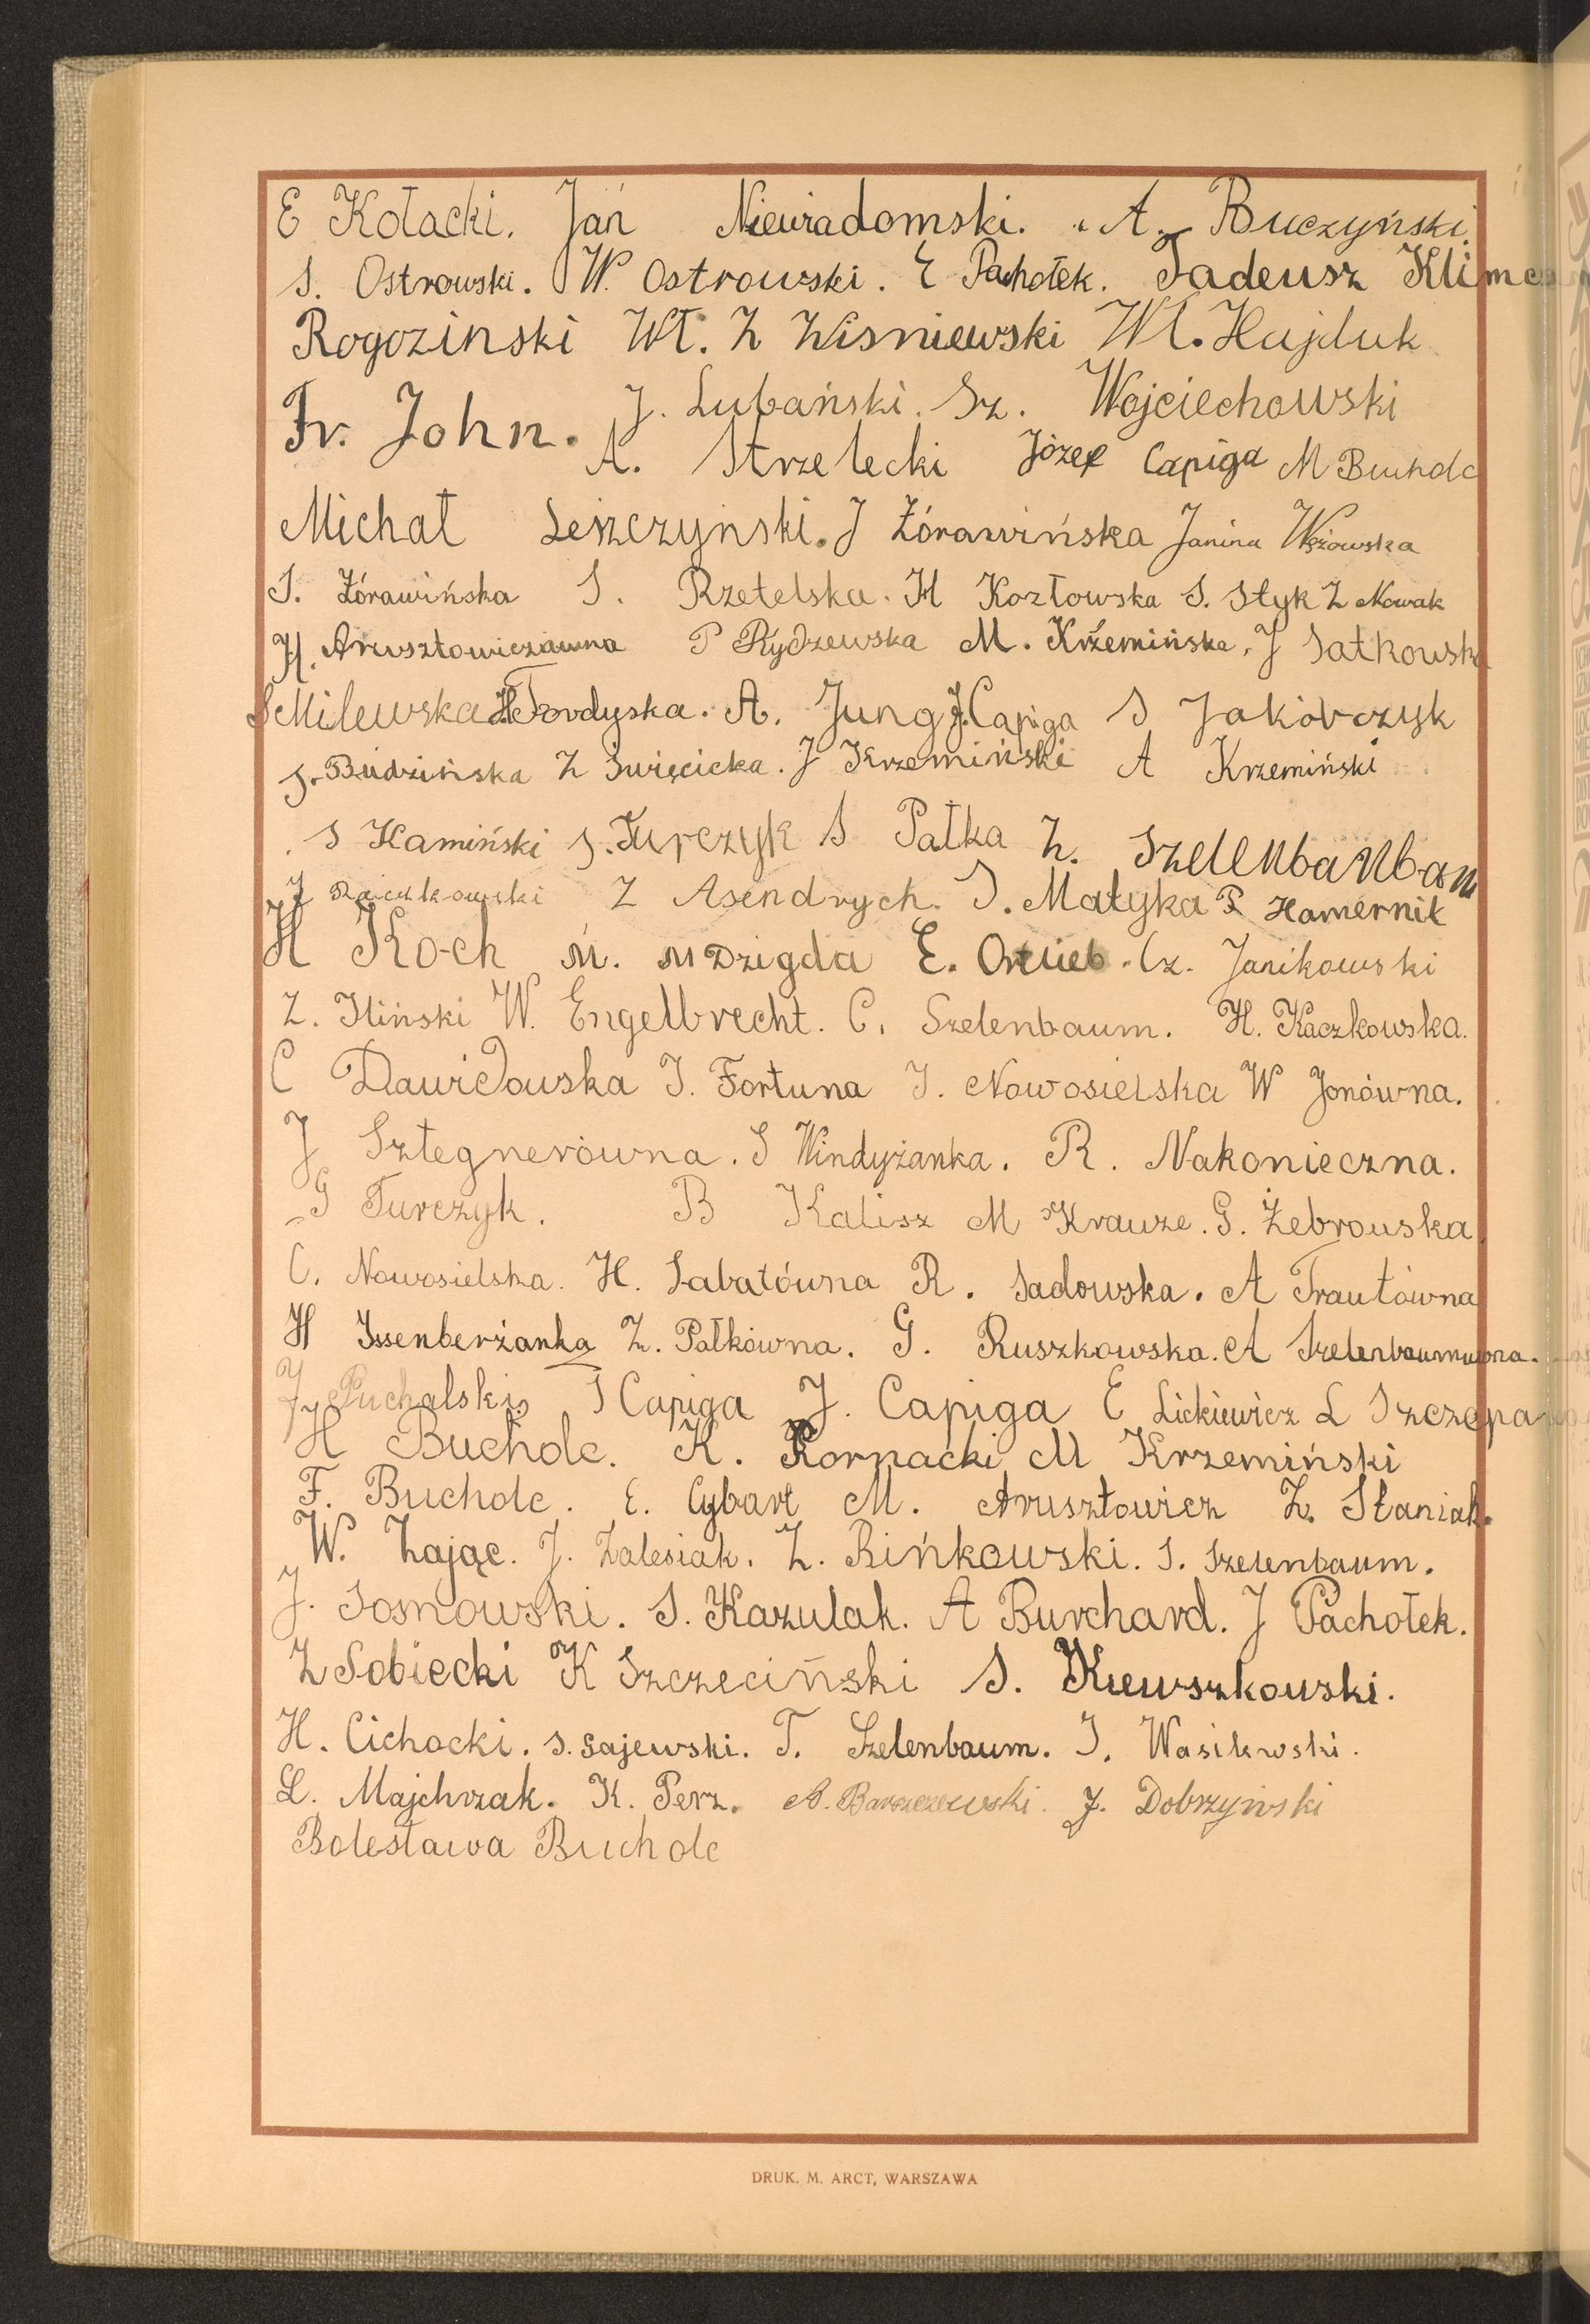 E Kołacki. Jan Niewiadomski. A. Buczyński.
S. Ostrowski. W. Ostrowski. E Pachołek. Tadeusz Klimc
Rogozinski Wł. Z Wisniewski Wł. Hajduk
Fr. John. J. Lubański. Sz. Wojciechowski
A. Strzelecki Józef Capiga M Bucholc
Michał Leszczynski. J Żórawińska Janina Wężowska
S. Żórawińska S. Rzetelska. H Kozłowska S. Styk Z Nowak
H. Arusztowiczówna P Rydzewska M. Krzemińska. J Satkowska
S Milewska H Fordyska. A. Jung J. Capiga S Jakóbczyk
J. Budzińska Z Święcicka. J Krzemiński A Krzemiński
S Kamiński S. Turczyk S Pałka Z. Szelenbaubam
J Raczkowski Z Asendrych. J. Matyka P Hamernik
H Koch M. M Dzigda E. Cz. Janikowski
Z. Iliński W. Engelbrecht. C. Szelenbaum. H. Kaczkowska.
C Dawidowska I. Fortuna I. Nowosielska W Jonówna.
J Sztegnerówna. S Windyżanka. R. Nakonieczna.
G Turczyk. B Kalisz M Krauze. G. Żebrowska
C. Nowosielska. H. Sabatówna R. Sadowska. A Trautówna
H Issenberżanka Z. Pałkówna. G. Ruszkowska. A Szelenbaumuwna.
J Puchalski T Capiga J. Capiga E Lickiewicz L Szczepa
H Bucholc. K. Kornacki M Krzemiński
F. Bucholc. E. Cybart M. Arusztowicz Z. Staniak.
W. Zając. J. Zalesiak. Z. Bińkowski. S. Szelenbaum.
J. Sosnowski. S. Kazulak. A Burchard. J Pachołek.
Z Sobiecki K Szczeciński S. Kiewszkowski.
H. Cichocki. S. Gajewski. T. Szelenbaum. J. Wasilewski.
L. Majchrzak. K. Perz. A. Barszczewski. J. Dobrzyński
Bolesława Bucholc
DRUK. M. ARCT, WARSZAWA